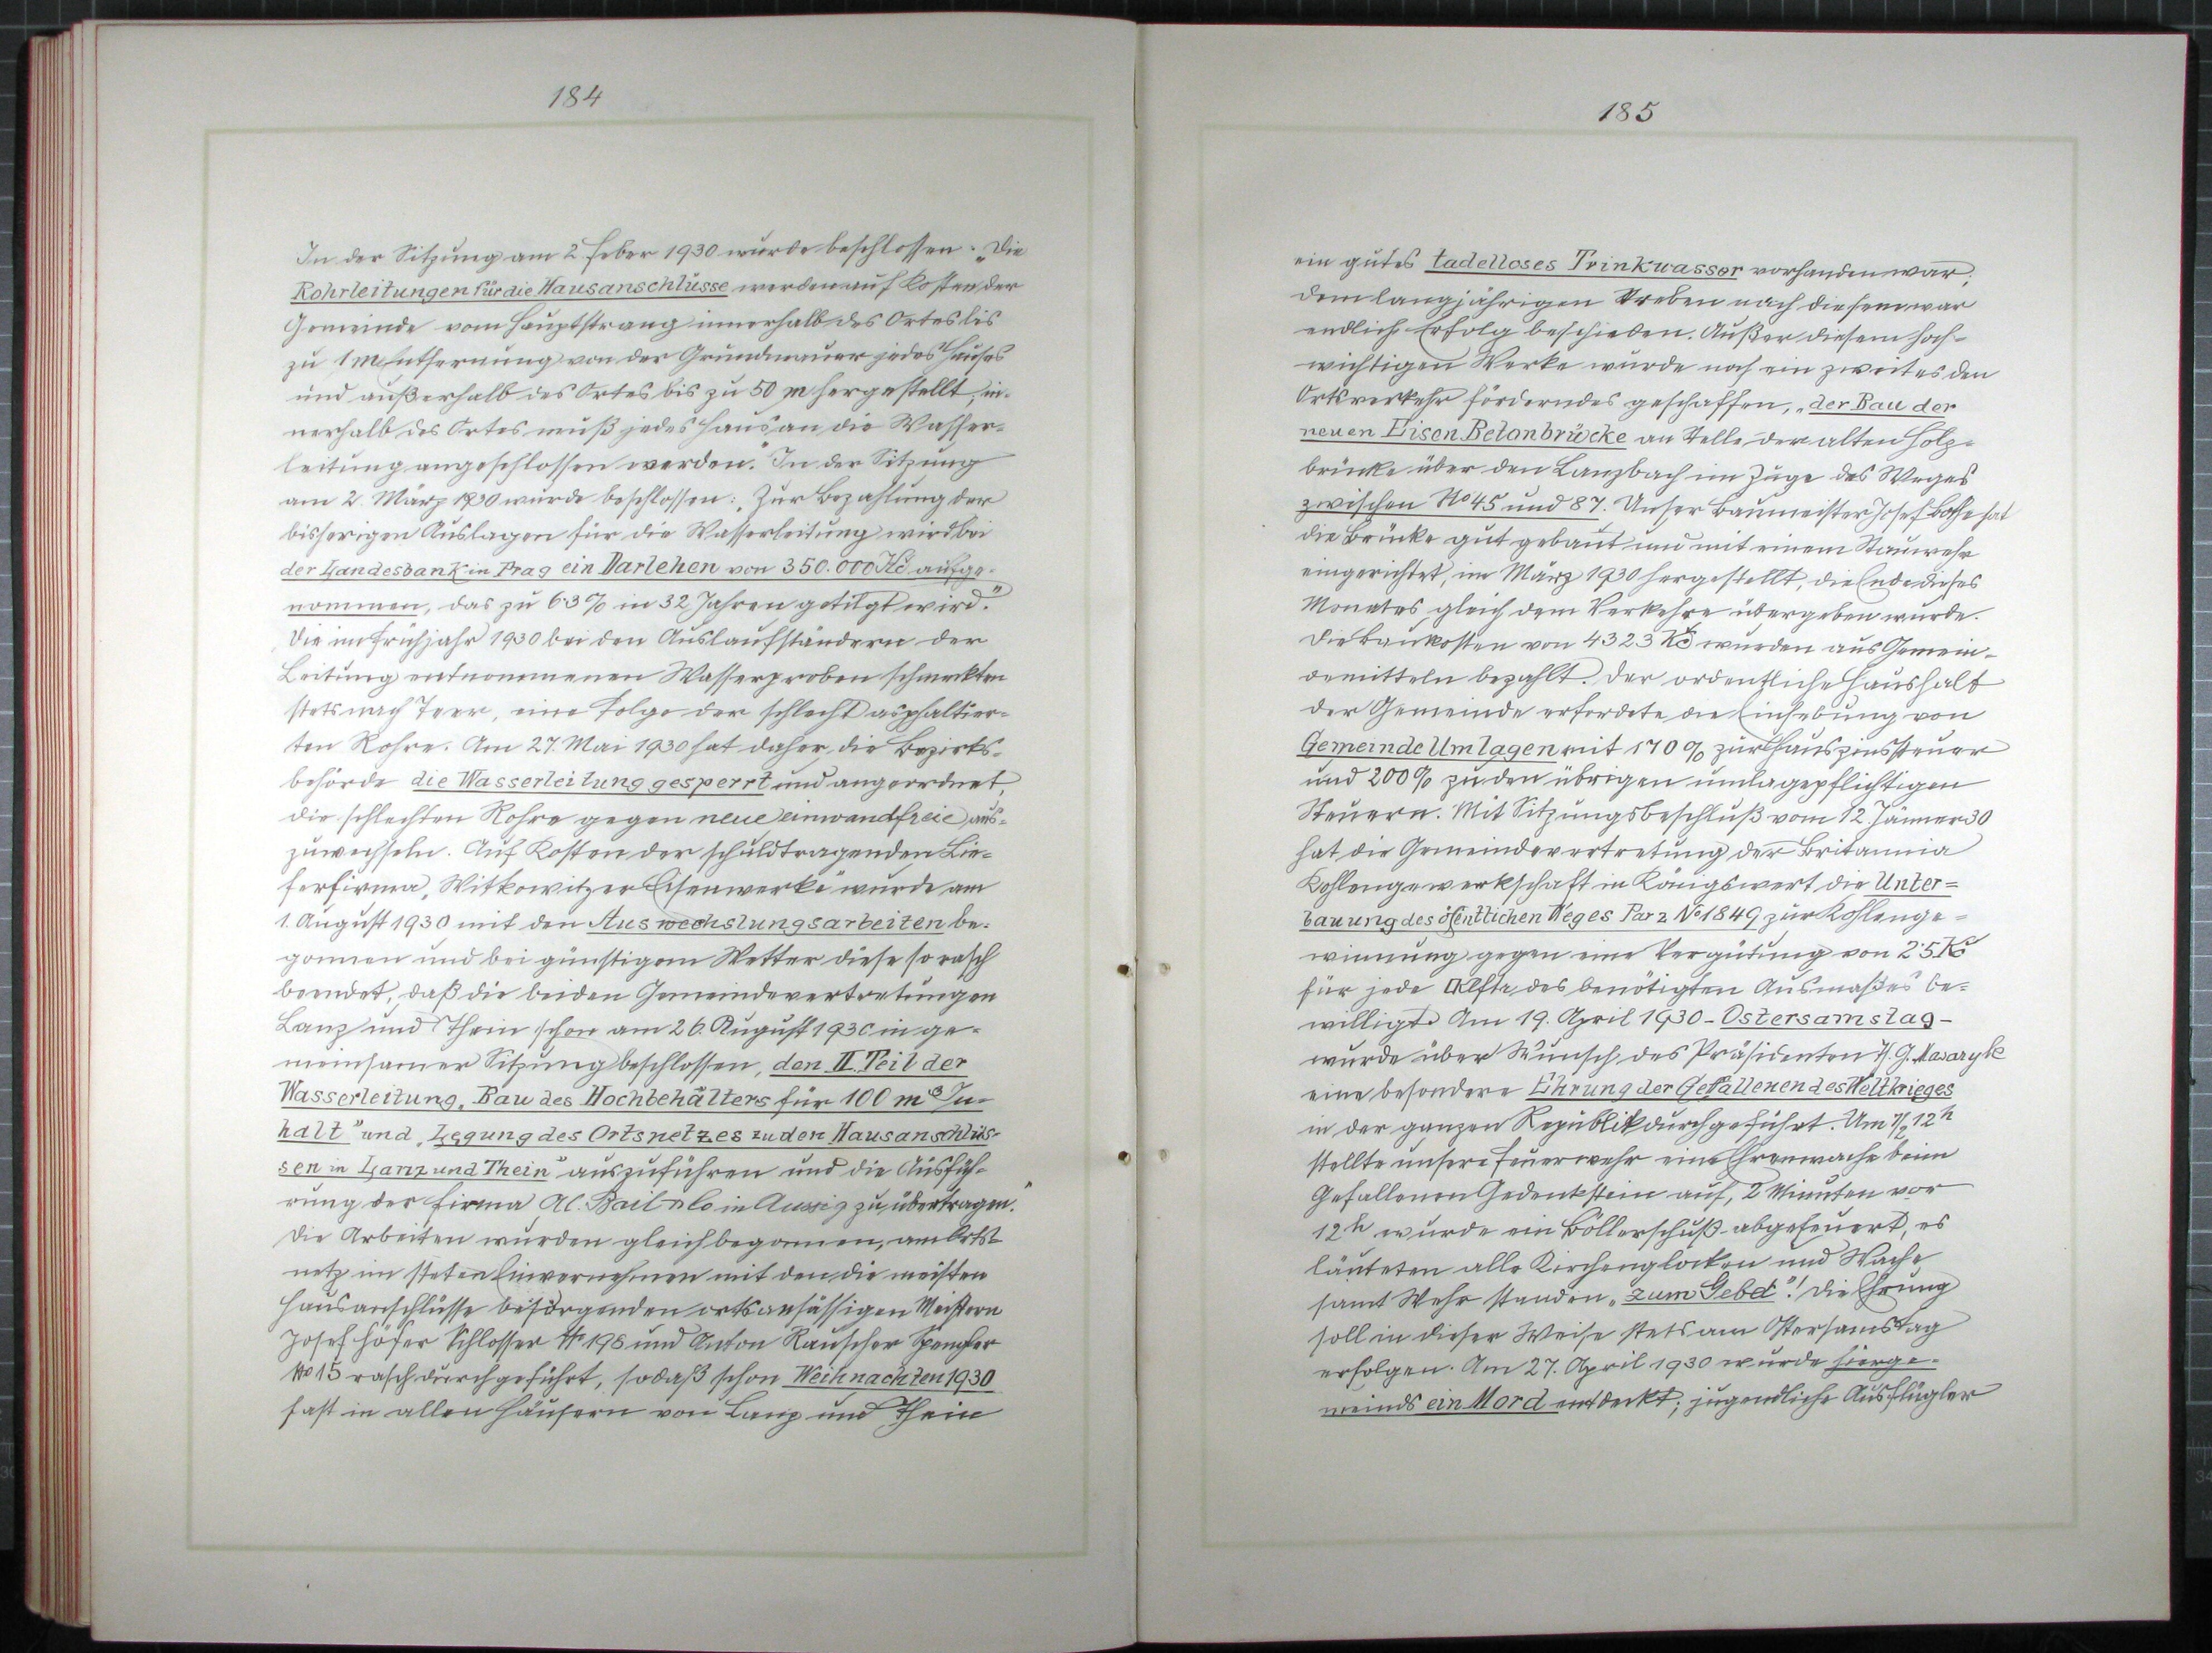 184
In der Sitzung am 2. Feber 1930 wurde beschlossen: „Die
Rohrleitungen für die Hausanschlüsse werden auf Kosten der
Gemeinde vom Hauptstrang innerhalb des Ortes bis
zu 1 m Entfernung von der Grundmauer jedes Hauses
und außerhalb des Ortes bis zu 50 m hergestellt, in-
nerhalb des Ortes muß jedes Haus an die Wasser-
leitung angeschlossen werden." In der Sitzung
am 2. März 1930 wurde beschlossen: „Zur Bezahlung der
bisherigen Auslagen für die Wasserleitung wird bei
der Landesbank in Prag ein Darlehen von 350.000 Kč aufge-
nommen, das zu 6·3% in 32 Jahren getilgt wird."
Die im Frühjahr 1930 bei den Auslaufständern der
Leitung entnommenen Wasserproben schmeckten
stets nach Teer, eine Folge der schlecht asphaltier-
ten Rohre. Am 27. Mai 1930 hat daher die Bezirks-
behörde die Wasserleitung gesperrt und angeordnet,
die schlechten Rohre gegen neue einwandfreie aus-
zuwechseln. Auf Kosten der schuldtragenden Lie-
ferfirma „Witkowitzer Eisenwerke" wurde am
1. August 1930 mit den Auswechslungsarbeiten be-
gonnen und bei günstigem Wetter diese so rasch
beendet, daß die beiden Gemeindevertretungen
Lanz und Thein schon am 26. August 1930 in ge-
meinsamer Sitzung beschlossen, den II. Teil der
Wasserleitung „Bau des Hochbehälters für 100 m³ In-
halt" und „Legung des Ortsnetzes zu den Hausanschlüs-
sen in Lanz und Thein" auszuführen und die Ausfüh-
rung der Firma Al. Bail & Co in Aussig zu übertragen."
Die Arbeiten wurden gleich begonnen, am Orts-
netz im steten Einvernehmen mit den die meisten
Hausanschlüsse besorgenden ortsansässigen Meistern
Josef Höfer Schlosser № 198 und Anton Rauscher Spengler
№ 15 rasch durchgeführt, sodaß schon Weihnachten 1930
fast in allen Häusern von Lanz und Thein
185
ein gutes tadelloses Trinkwasser vorhanden war;
dem langjährigen Streben nach diesem war
endlich Erfolg beschieden. Außer diesem hoch-
wichtigen Werke wurde noch ein zweites den
Ortsverkehr förderndes geschaffen, „der Bau der
neuen Eisen Betonbrücke an Stelle der alten Holz-
brücke über den Lanzbach im Zuge des Weges
zwischen No 45 und 87. Unser Baumeister Josef hat
die Brücke gut gebaut und mit einem Stauwehr
eingerichtet, im März 1930 hergestellt, die Ende dieses
Monates gleich dem Verkehre übergeben wurde.
Die Baukosten von 4323 Kč wurden aus Gemein-
demitteln bezahlt. Der ordentliche Haushalt
der Gemeinde erfordete die Einhebung von
Gemeinde Umlagen mit 170% zur Hauszinssteuer
und 200% zu den übrigen umlagepflichtigen
Steuern. Mit Sitzungsbeschluß vom 12. Jänner 30
hat die Gemeindevertretung der Britannia
Kohlengewerkschaft in Königswert die Unter=
bauung des öffentlichen Weges Parz No 1849 zur Kohlenge-
winnung gegen eine Vergütung von 2·5 Kč
für jede □Klftr des benötigten Ausmaßes be-
willigt. Am 19. April 1930 - Ostersamstag -
wurde über Wunsch des Präsidenten T. G. Masaryk
eine besondere Ehrung der Gefallenen des Weltkrieges
in der ganzen Republik durchgeführt. Um ½ 12h
stellte unsere Feuerwehr eine Ehrenwache beim
Gefallenen Gedenkstein auf, 2 Minuten vor
12h wurde ein Böllerschuß abgefeuert, es
läuteten alle Kirchenglocken und Wache
samt Wehr standen „zum Gebet"! Die Ehrung
soll in dieser Weise stets am Ostersamstag
erfolgen. Am 27. April 1930 wurde hierge-
meinds ein Mord entdeckt; jugendliche Ausflügler